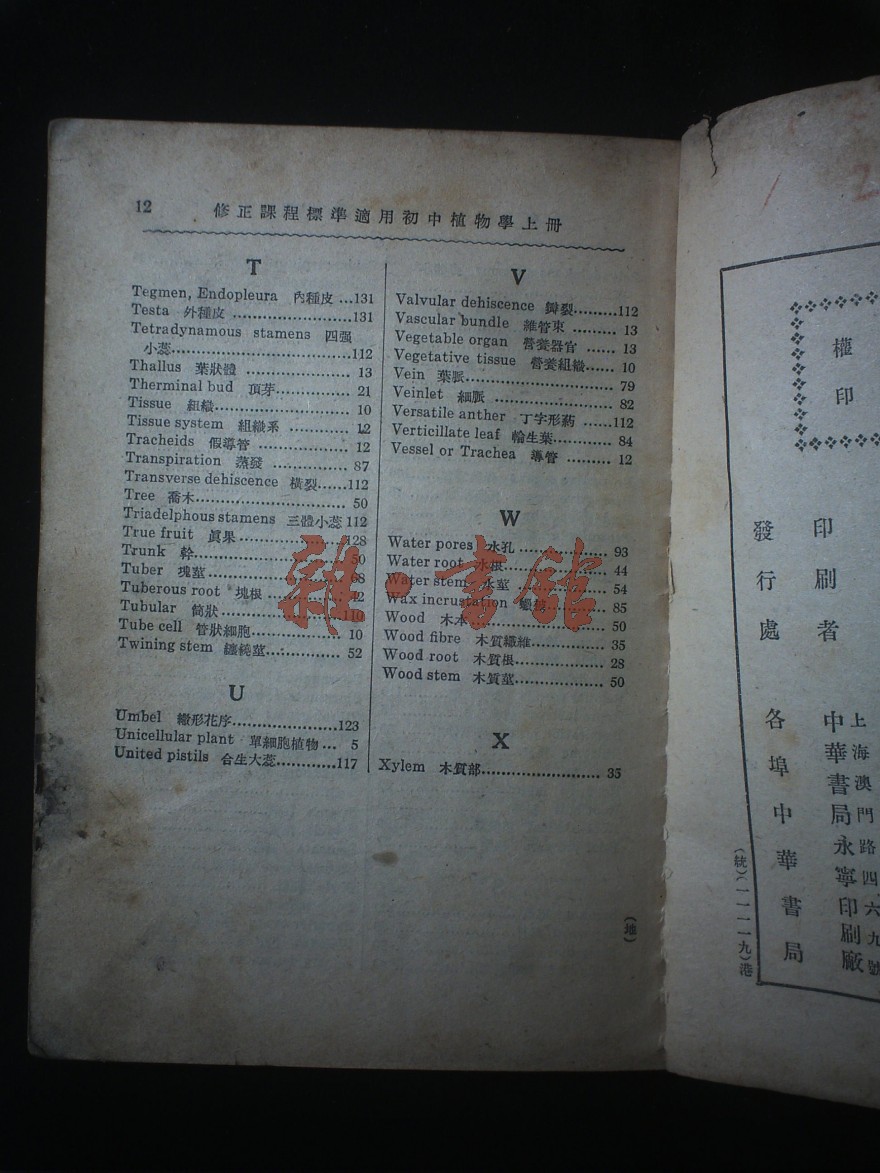 12 修正課程標準適用初中植物學上冊
T
Tegmen, Endopleura 內種皮 ...131
Testa 外種皮 ......................131
Tetradynamous stamens 四强
小蕊.................................112
Thallus 葉狀體 .................... 13
Therminal bud 頂芽.............. 21
Tissue 組織......................... 10
Tissue system 組織系 ........... 12
Tracheids 假導管 ................. 12
Transpiration 蒸發 ............... 87
Transverse dehiscence 橫裂......112
Tree 喬木........................... 50
Triadelphous stamens 三體小蕊 112
True fruit 眞果....................128
Trunk 幹............................ 50
Tuber 塊莖......................... 68
Tuberous root 塊根 .............. 42
Tubular 筒狀 ......................110
Tube cell 管狀細胞................ 10
Twining stem 纏繞莖.............. 52
U
Umbel 繖形花序....................123
Unicellular plant 單細胞植物 ... 5
United pistils 合生大蕊............117
V
Valvular dehiscence 瓣裂.........112
Vascular bundle 維管束 ......... 13
Vegetable organ 營養器官 ...... 13
Vegetative tissue 營養組織...... 10
Vein 葉脈........................... 79
Veinlet 細脈 ....................... 82
Versatile anther 丁字形葯 ......112
Verticillate leaf 輪生葉............ 84
Vessel or Trachea 導管 ......... 12
W
Water pores 水孔 ................. 93
Water root 水根................... 44
Water stem 水莖.................. 54
Wax incrustation ................ 85
Wood 木本......................... 50
Wood fibre 木質纖維.............. 35
Wood root 木質根................. 28
Wood stem 木質莖................ 50
X
Xylem 木質部...................... 35
(地)
權印
印刷者
中華書局永寧印刷廠
上海澳門路四六九號
發行處 各埠中華書局
(統)(一一一一九)港
雜·書館